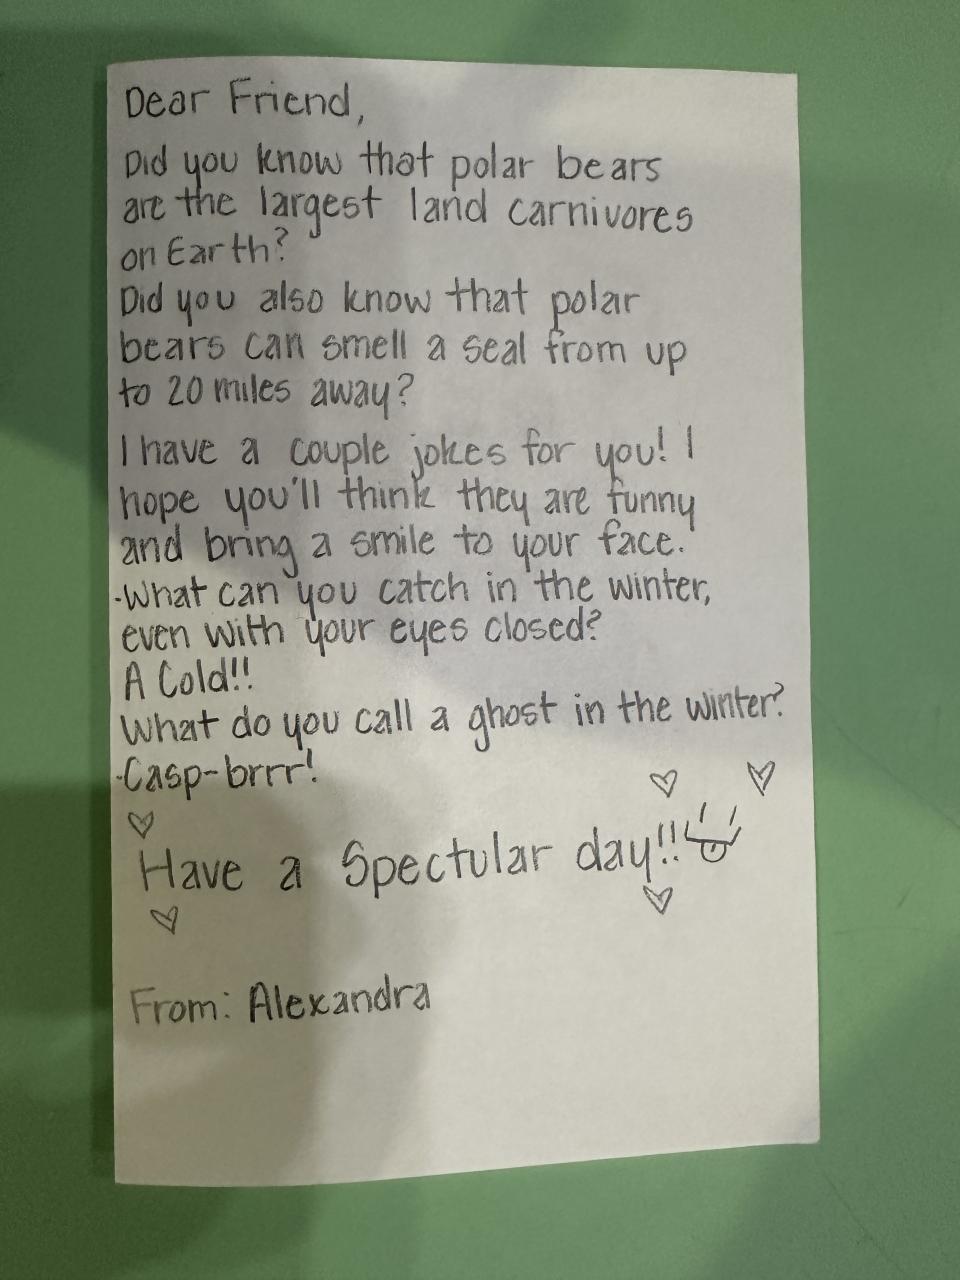 Dear Friend,
Did you know that polar bears
are the largest land carnivores
on Earth?
Did you also know that polar
bears can smell a seal from up
to 20 miles away?
I have a couple jokes for you! I
hope you'll think they are funny
and bring a smile to your face.
-What can you catch in the winter,
even with your eyes closed?
A Cold!!
What do you call a ghost in the winter?
-Casp-brrr!
Have a Spectular day!!
From: Alexandra